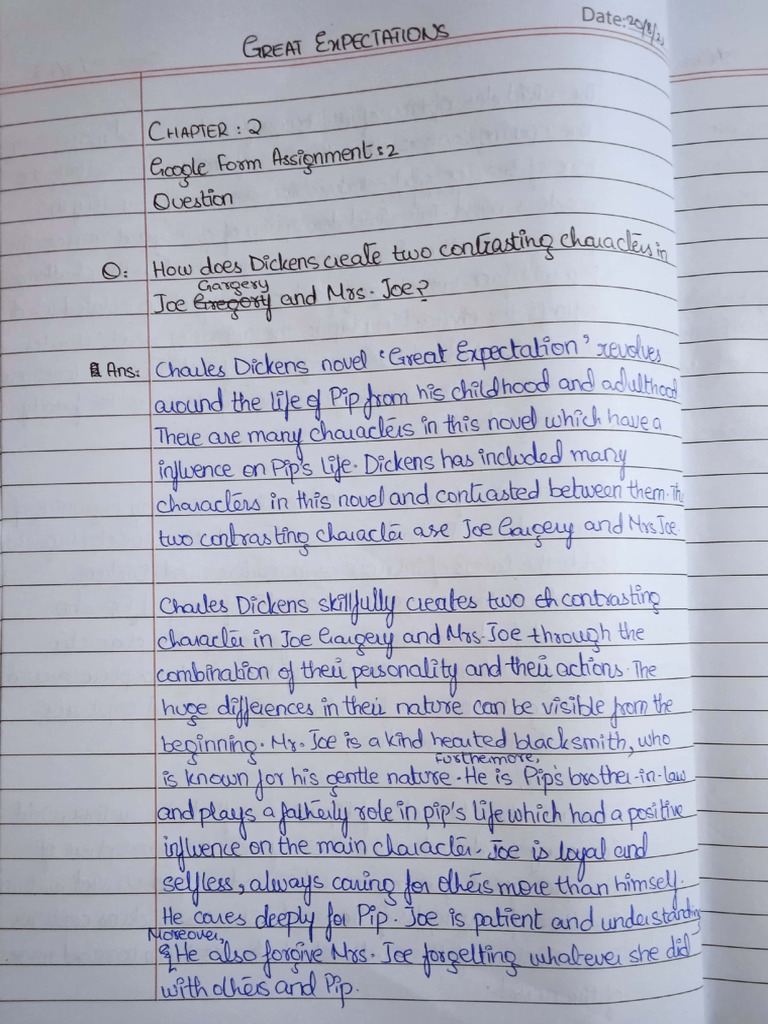 Date: 20/8/2
GREAT EXPECTATIONS
CHAPTER : 2
Google Form Assignment : 2
Question
Q: How does Dickens create two contrasting characters in
Gargery
Joe Gregory and Mrs. Joe?
Ans: Charles Dickens novel 'Great Expectation' revolves
around the life of Pip from his childhood and adulthood
There are many characters in this novel which have a
influence on Pip's life. Dickens has included many
characters in this novel and contrasted between them. The
two contrasting character are Joe Gargery and Mrs Joe.
Charles Dickens skillfully creates two contrasting
character in Joe Gargery and Mrs. Joe through the
combination of their personality and their actions. The
huge differences in their nature can be visible from the
beginning. Mr. Joe is a kind hearted blacksmith, who
furthermore,
is known for his gentle nature. He is Pip's brother-in-law
and plays a fatherly role in pip's life which had a positive
influence on the main character. Joe is loyal and
selfless, always caring for others more than himself.
He cares deeply for Pip. Joe is patient and understanding
Moreover,
He also forgive Mrs. Joe forgetting whatever she did
with others and Pip.